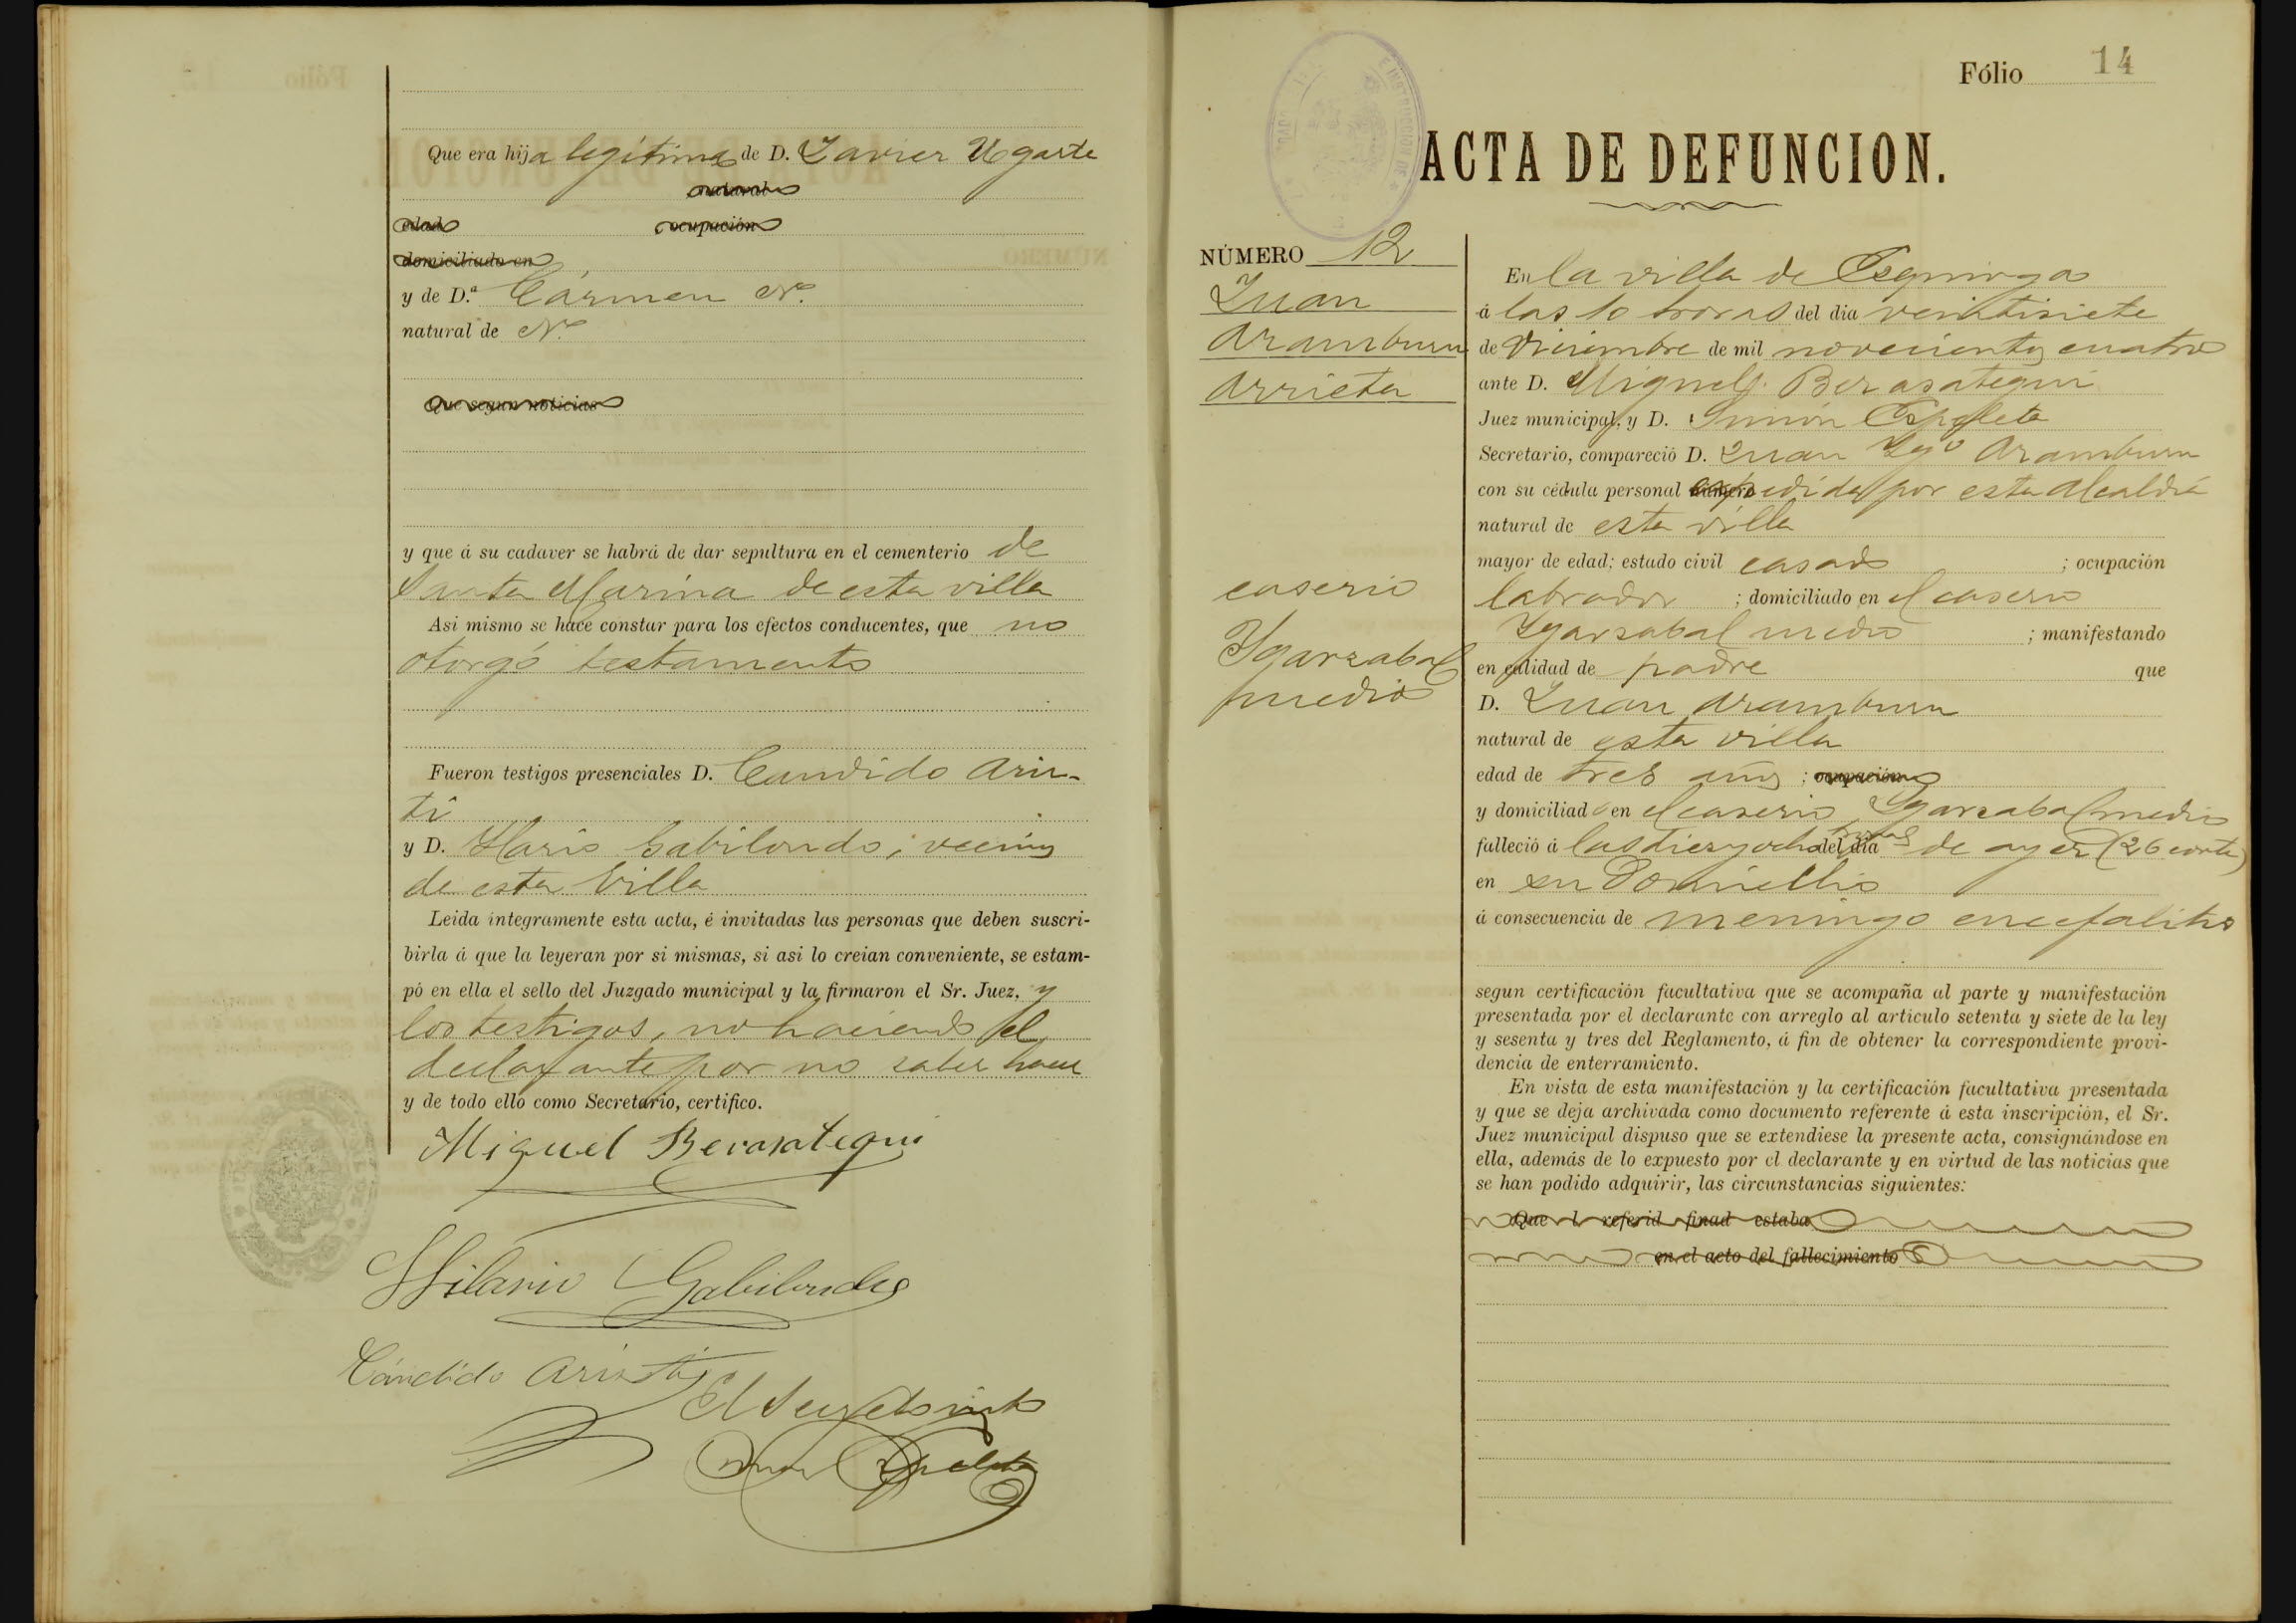 Que era hija legítima de D. Xavier Ugarte
natural
edad ocupación
domiciliado en
y de D.ª Cármen N.
natural de N.
Que segun noticias
y que á su cadaver se habrá de dar sepultura en el cementerio de
Santa Marina de esta villa
Asi mismo se hace constar para los efectos conducentes, que no
otorgó testamento
Fueron testigos presenciales D. Candido Aris-
ti
y D. Ylario Gabilondo, vecinos
de esta Villa
Leida integramente esta acta, é invitadas las personas que deben suscri-
birla á que la leyeran por si mismas, si asi lo creian conveniente, se estam-
pó en ella el sello del Juzgado municipal y la firmaron el Sr. Juez, y
los testigos, no haciendo el
declarante por no saber hacer
y de todo ello como Secretario, certifico.
Miguel Berasategui
Hilario Gabilondo
Cándido Aristi
El Secretario
Fólio 14
ACTA DE DEFUNCION.
NÚMERO 12
Juan
Aramburu
Arrieta
caserio
Ygarzabal
medio
En la villa de Ezquioga
á las 10 horas del dia veintisiete
de Diciembre de mil novecientos cuatro
ante D. Miguel J. Berasategui
Juez municipal, y D. Simón Ezpeleta
Secretario, compareció D. Juan Ygº Aramburu
con su cédula personal número expedida por esta Alcaldía
natural de esta villa
mayor de edad; estado civil casado ; ocupación
labrador ; domiciliado en el caserio
Ygarzabal medio ; manifestando
en calidad de padre que
D. Juan Aramburu
natural de esta villa
edad de tres años ; ocupación
y domiciliado en el caserio Ygarzabal medio
falleció á las diez y ocho horas del dia de ayer (26 corte)
en su Domicilio
á consecuencia de meningo encefalitis
segun certificación facultativa que se acompaña al parte y manifestación
presentada por el declarante con arreglo al articulo setenta y siete de la ley
y sesenta y tres del Reglamento, á fin de obtener la correspondiente provi-
dencia de enterramiento.
En vista de esta manifestación y la certificación facultativa presentada
y que se deja archivada como documento referente á esta inscripción, el Sr.
Juez municipal dispuso que se extendiese la presente acta, consignándose en
ella, además de lo expuesto por el declarante y en virtud de las noticias que
se han podido adquirir, las circunstancias siguientes:
Que l referid finad estaba
en el acto del fallecimiento